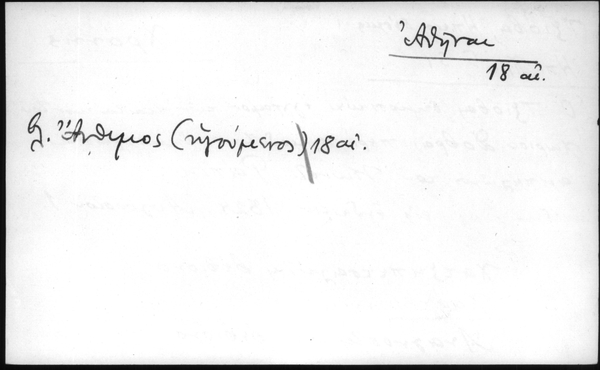 Ἀθῆναι
18 αἰ.
βλ. Ἄνθιμος (ἡγούμενος) 18 αἰ.